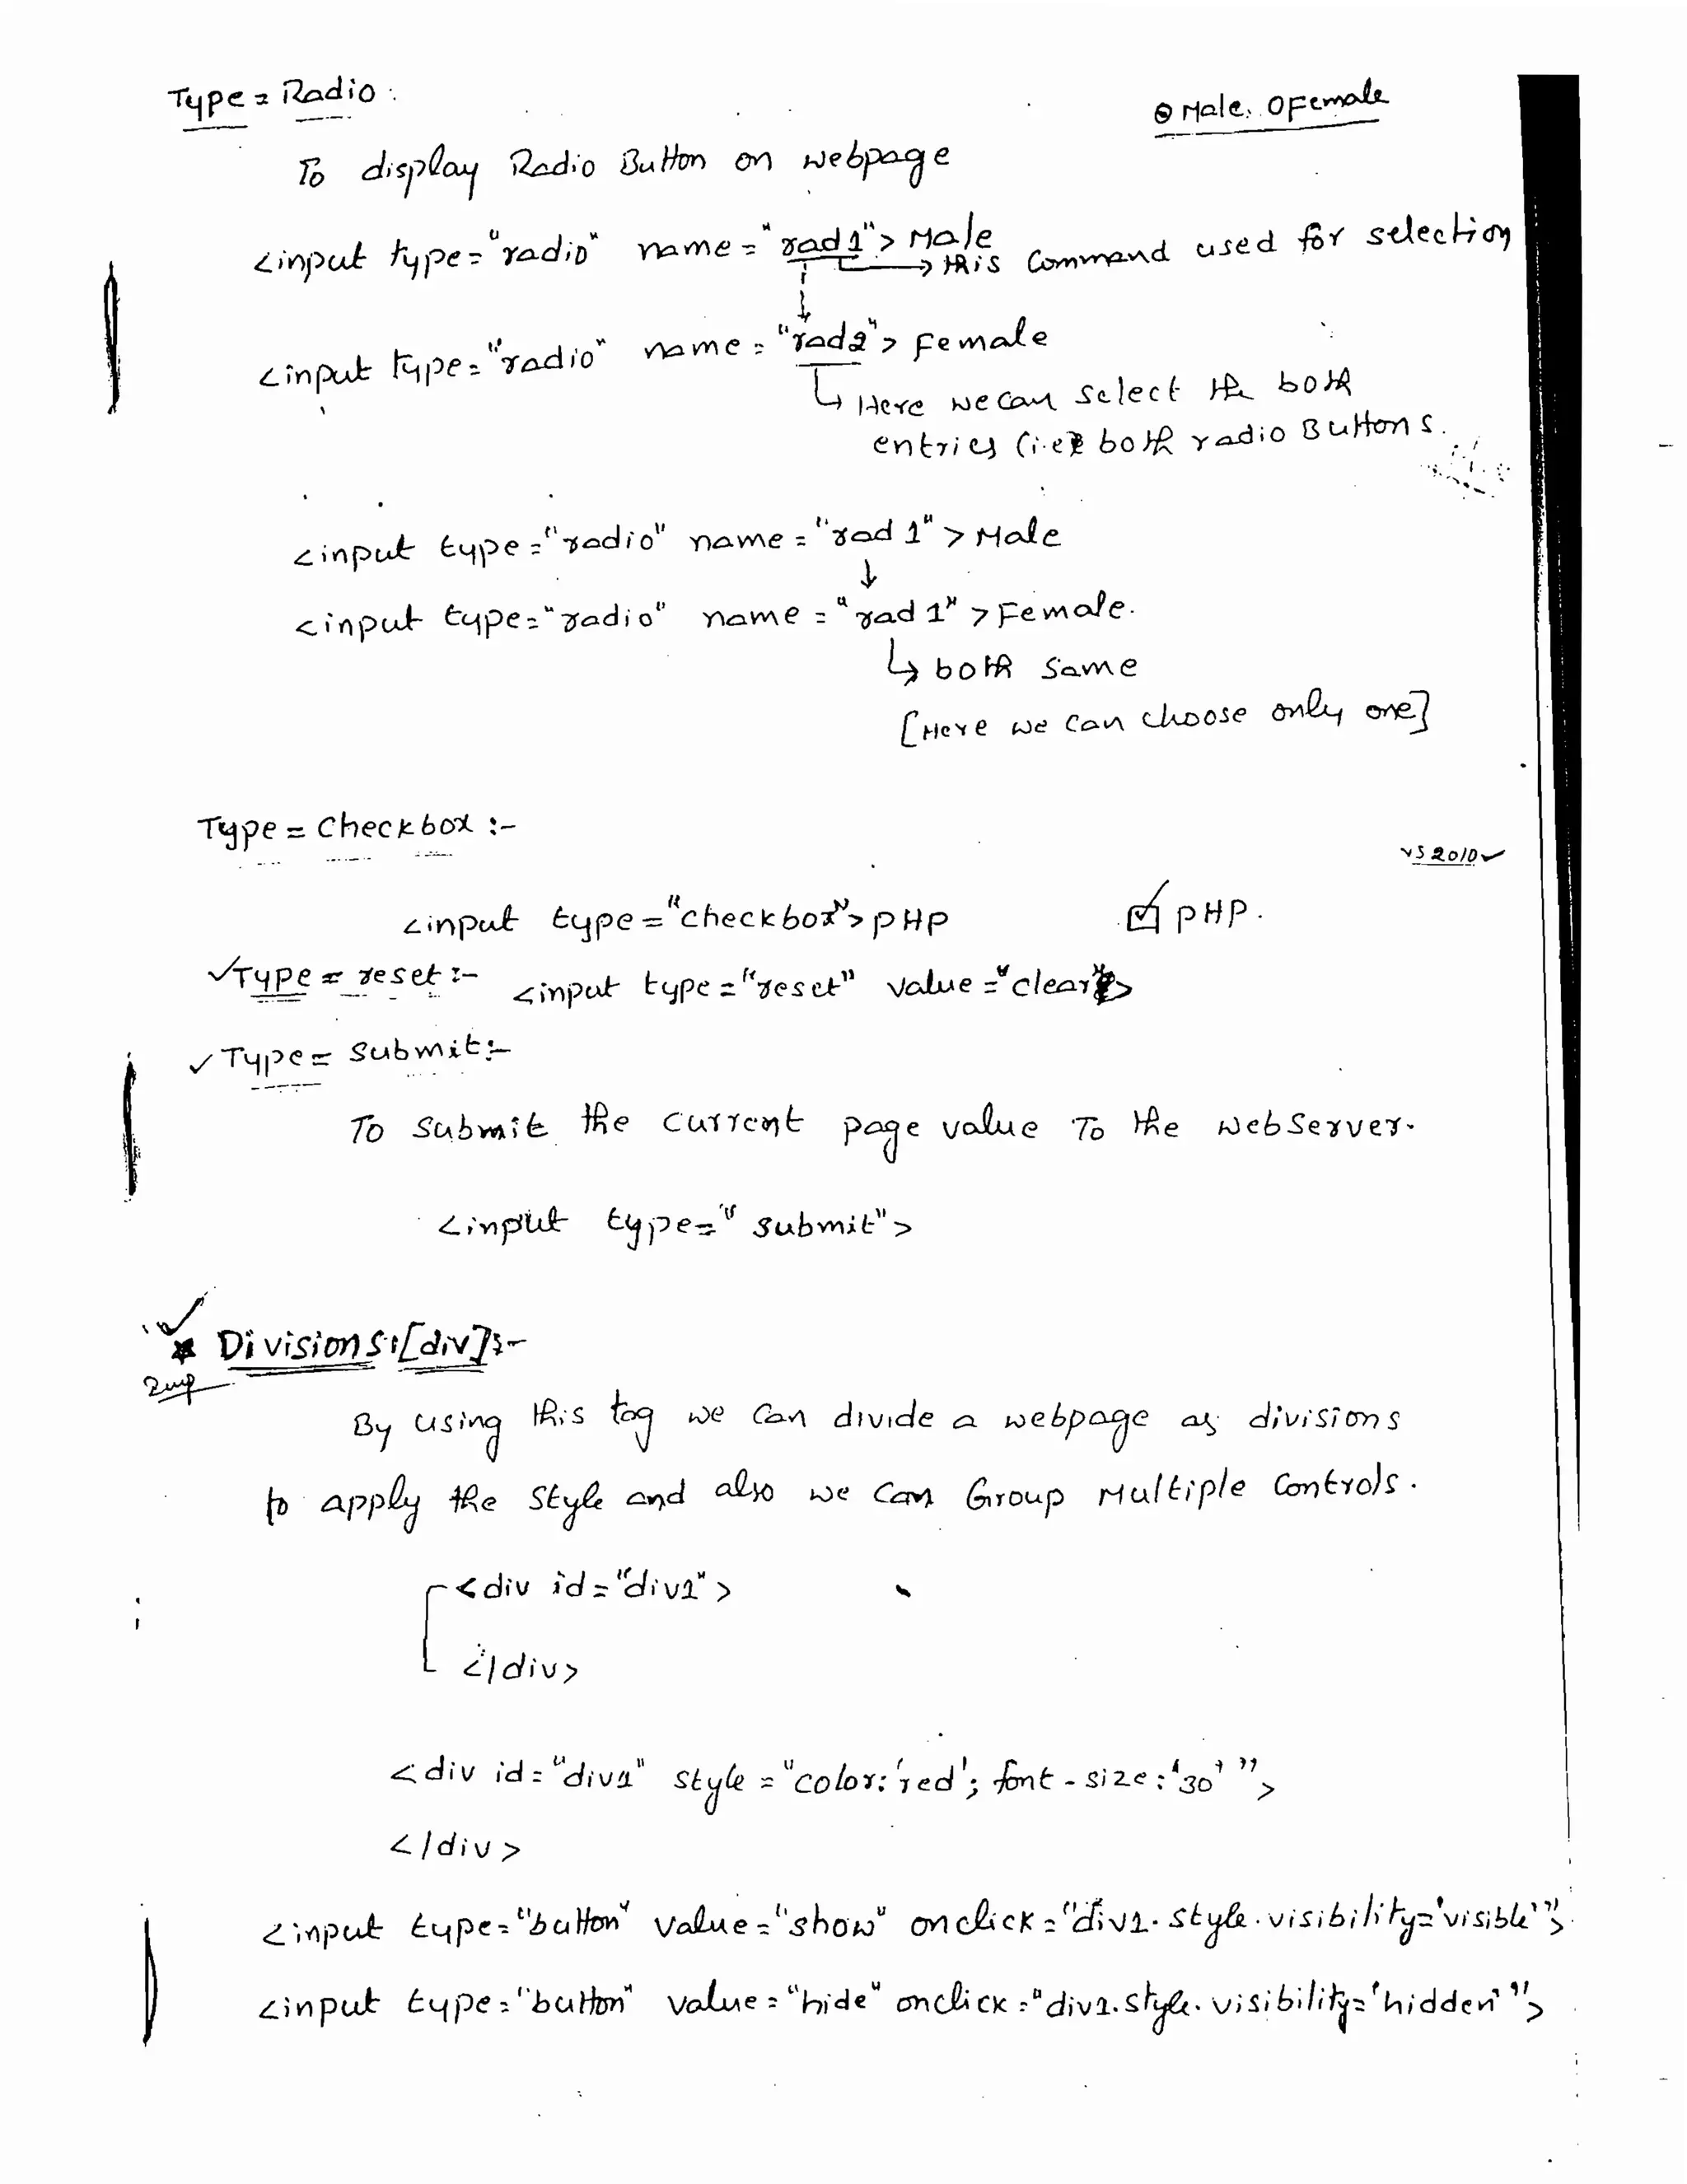 Type = Radio :
⊙ Male. O Female
To display Radio Button on webpage
<input type="radio" name="rad1"> Male
→ this Command used for selection
<input type="radio" name="rad2"> Female
↳ Here we can select the both
entries (i.e both radio Buttons.
<input type="radio" name="rad 1"> Male
↓
<input type="radio" name="rad 1"> Female.
↳ both same
[Here we can choose only one]
Type = Checkbox :-
VS 2010 ✓
<input type="checkbox"> PHP
☑ PHP.
✓Type = reset :- <input type="reset" value="clear">
✓ Type = Submit :-
To Submit the current page value To the webServer.
<input type="submit">
✓
★ Divisions:[div]:-
Imp
By using this tag we can divide a webpage as divisions
to apply the style and also we can Group Multiple Controls.
<div id="div1">
</div>
<div id="div1" style="color:'red'; font-size:'30'">
</div>
<input type="button" value="show" onclick="div1.style.visibility='visible'">
<input type="button" value="hide" onclick="div1.style.visibility='hidden'">